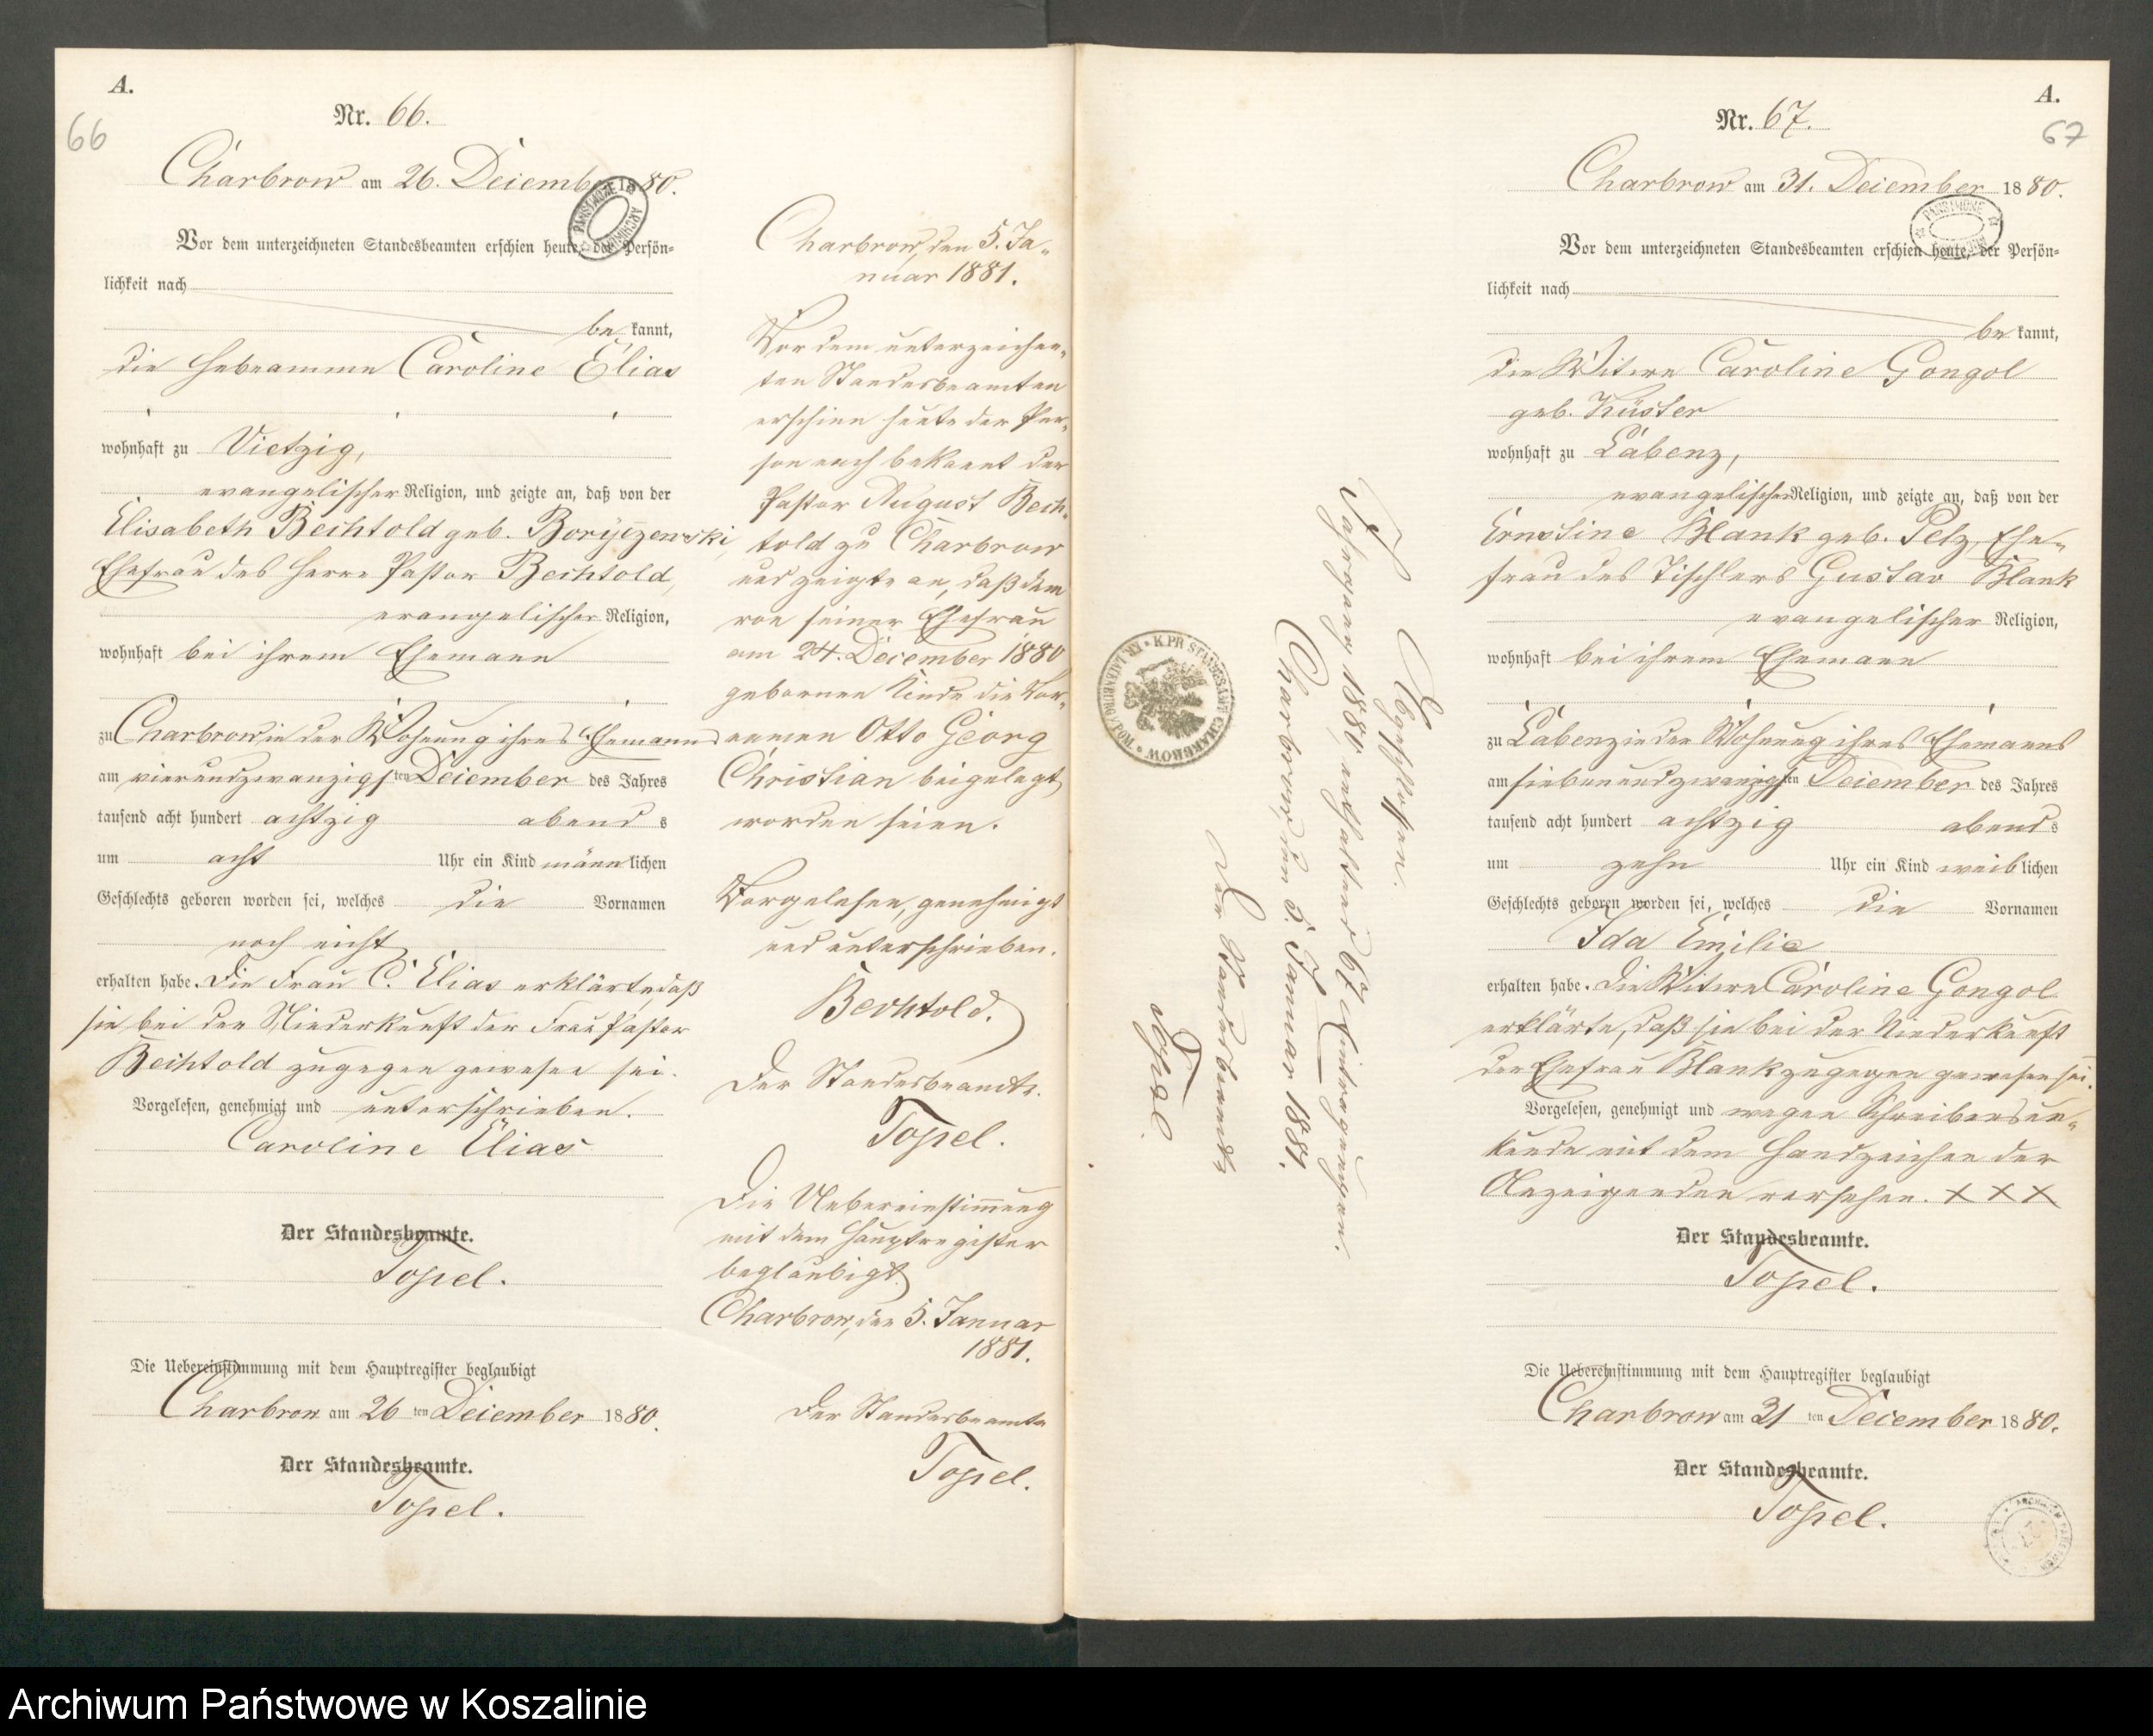 A.
66
Nr. 66.
Charbrow am 26. December 1880.
Vor dem unterzeichneten Standesbeamten erschien heute, der Persön-
lichkeit nach
be kannt,
die Hebeamme Caroline Elias
wohnhaft zu Vietzig,
evangelischer Religion, und zeigte an, daß von der
Elisabeth Bechtold geb.
Ehefrau des Herrn Pastor Bechtold,
evangelischer Religion,
wohnhaft bei ihrem Ehemann
zu Charbrow in der Wohnung ihres Ehemanns
am vierundzwanzigsten December des Jahres
tausend acht hundert achtzig abends
um acht Uhr ein Kind männlichen
Geschlechts geboren worden sei, welches die Vornamen
noch nicht
erhalten habe. Die Frau C. Elias erklärte, daß
sie bei der Niederkunft der Frau Pastor
Bechtold zugegen gewesen sei.
Vorgelesen, genehmigt und unterschrieben.
Caroline Elias
Der Standesbeamte.
Topel.
Die Uebereinstimmung mit dem Hauptregister beglaubigt
Charbrow am 26 ten December 1880.
Der Standesbeamte.
Topel.
Charbrow, den 5. Ja-
nuar 1881.
Vor dem unterzeichne-
ten Standesbeamten
erschien heute der Per-
son nach bekannt der
Pastor August Bech-
told zu Charbrow
und zeigte an, daß dem
von seiner Ehefrau
am 24. December 1880
gebornen Kinde die Vor-
namen Otto Georg
Christian beigelegt
worden seien.
Vorgelesen, genehmigt
und unterschrieben.
Bechtold.
Der Standesbeamte.
Topel.
Die Uebereinstimmung
mit dem Hauptregister
beglaubigt
Charbrow, den 5. Januar
1881.
Der Standesbeamte
Topel.
Abgeschlossen.
Jahrgang 1880 enthaltend 67 Eintragungen.
Charbrow, den 5. Januar 1881.
Der Standesbeamte
Topel.
K. PR. STANDESAMT CHARBROW
A.
67
Nr. 67.
Charbrow am 31. December 1880.
Vor dem unterzeichneten Standesbeamten erschien heute, der Persön-
lichkeit nach
be kannt,
die Witwe Caroline Gongol
geb. Küster
wohnhaft zu Labenz,
evangelischer Religion, und zeigte an, daß von der
Ernstine Blank geb. Pelz, Ehe-
frau des Tischlers Gustav Blank
evangelischer Religion,
wohnhaft bei ihrem Ehemann
zu Labenz in der Wohnung ihres Ehemanns
am siebenundzwanzigsten December des Jahres
tausend acht hundert achtzig abends
um zehn Uhr ein Kind weiblichen
Geschlechts geboren worden sei, welches die Vornamen
Ida Emilie
erhalten habe. Die Witwe Caroline Gongol
erklärte, daß sie bei der Niederkunft
der Ehefrau Blank zugegen gewesen sei.
Vorgelesen, genehmigt und wegen Schreibensun-
kunde mit dem Handzeichen der
Anzeigenden versehen. X X X
Der Standesbeamte.
Topel.
Die Uebereinstimmung mit dem Hauptregister beglaubigt
Charbrow am 31 ten December 1880.
Der Standesbeamte.
Topel.
Archiwum Państwowe w Koszalinie